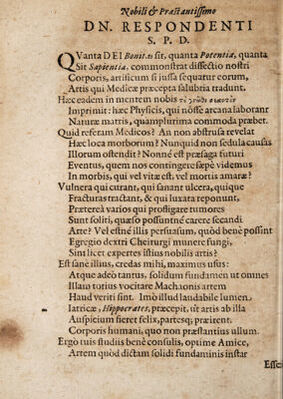 Nobili & Præstantissimo
DN. RESPONDENTI
S. P. D.
QVanta DEI Bonitas sit, quanta Potentia, quanta
Sit Sapientia, commonstrat dissectio nostri
Corporis, artificum si jussa sequatur eorum,
Artis qui Medicæ præcepta salubria tradunt.
Hæc eadem in mentem nobis
Imprimit: hæc Physicis, qui nôsse arcana laborant
Naturæ matris, quamplurima commoda præbet.
Quid referam Medicos? An non abstrusa revelat
Hæc loca morborum? Nunquid non sedula causas
Illorum ostendit? Nonne est præsaga futuri
Eventus, quem nos contingere sæpè videmus
In morbis, qui vel vitæ est, vel mortis amaræ?
Vulnera qui curant, qui sanant ulcera, quique
Fracturas tractant, & qui luxata reponunt,
Præterea varios qui profligare tumores
Sunt soliti, quæso possuntne carere secandi
Arte? Vel estne illis persuasum, quod benè possint
Egregio dextri Cheirurgi munere fungi,
Sin licet expertes istius nobilis artis?
Est sanè illius, credas mihi, maximus usus:
Atque adeò tantus, solidum fundamen ut omnes
Illam totius vocitare Machaonis artem
Haud veriti sint. Imò illud laudabile lumen
Iatricæ, Hippocrates, præcepit, ut artis ab illa
Auspicium fieret felix, partesq; præirent
Corporis humani, quo non præstantius ullum.
Ergò tuis studiis benè consulis, optime Amice,
Artem quòd dictam solidi fundaminis instar
Esse